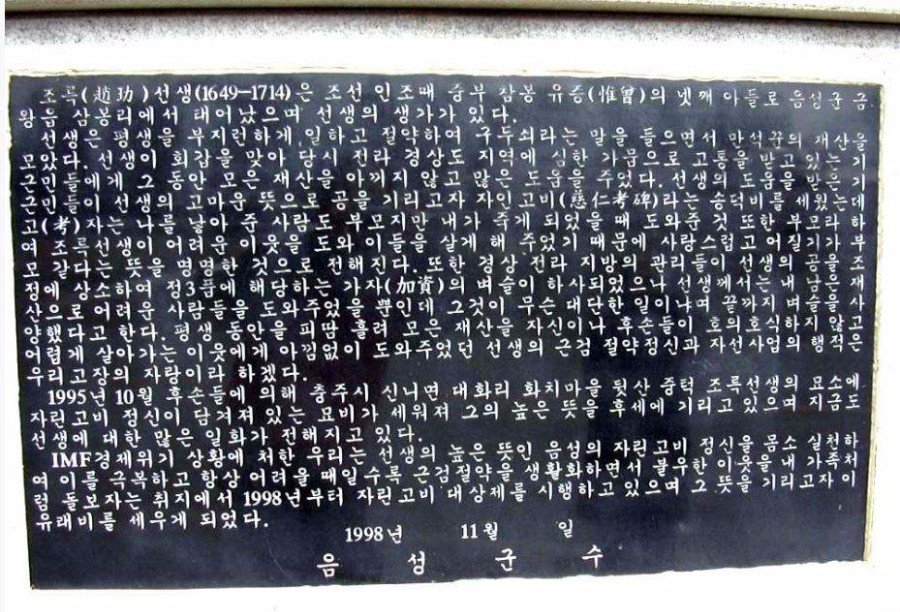 조륵(趙玏)선생(1649-1714)은 조선 인조때 숭부 참봉 유증(惟曾)의 넷째 아들로 음성군 금
왕읍 삼봉리에서 태어났으며 선생의 생가가 있다.
선생은 평생을 부지런하게 일하고 절약하여 구두쇠라는 말을 들으면서 만석꾼의 재산을
모았다. 선생이 회갑을 맞아 당시 전라 경상도 지역에 심한 가뭄으로 고통을 받고 있는 기
근민들에게 그 동안 모은 재산을 아끼지 않고 많은 도움을 주었다. 선생의 도움을 받은 기
근민들이 선생의 고마운 뜻으로 공을 기리고자 자인고비(慈仁考碑)라는 송덕비를 세웠는데
고(考)자는 나를 낳아 준 사람도 부모지만 내가 죽게 되었을 때 도와준것 또한 부모라 하
여 조륵선생이 어려운 이웃을 도와 이들을 살게 해 주었기 때문에 사랑스럽고 어질기가 부
모 같다는 뜻을 명명한 것으로 전해진다. 또한 경상 전라 지방의 관리들이 선생의 공을 조
정에 상소하여 정3품에 해당하는 가자(加資)의 벼슬이 하사되었으나 선생께서는 내 남은 재
산으로 어려운 사람들을 도와주었을 뿐인데 그것이 무슨 대단한 일이냐며 끝까지 벼슬을 사
양했다고 한다. 평생 동안을 피땀 흘려 모은 재산을 자신이나 후손들이 호의호식하지 않고
어렵게 살아가는 이웃에게 아낌없이 도와주었던 선생의 근검 절약정신과 자선사업의 행적은
우리고장의 자랑이라 하겠다.
1995년 10월 후손들에 의해 충주시 신니면 대화리 화치마을 뒷산 중턱 조륵선생의 묘소에
자린고비 정신이 담겨져 있는 묘비가 세워져 그의 높은 뜻을 후세에 기리고 있으며 지금도
선생에 대한 많은 일화가 전해지고 있다.
IMF경제위기 상황에 처한 우리는 선생의 높은 뜻인 음성의 자린고비 정신을 몸소 실천하
여 이를 극복하고 항상 어려울 때일 수록 근검절약을 생활화하면서 불우한 이웃을 내 가족처
럼 돌보자는 취지에서 1998년부터 자린고비 대상제를 시행하고 있으며 그 뜻을 기리고자 이
유래비를 세우게 되었다.
1998년 11월 일
음성군수